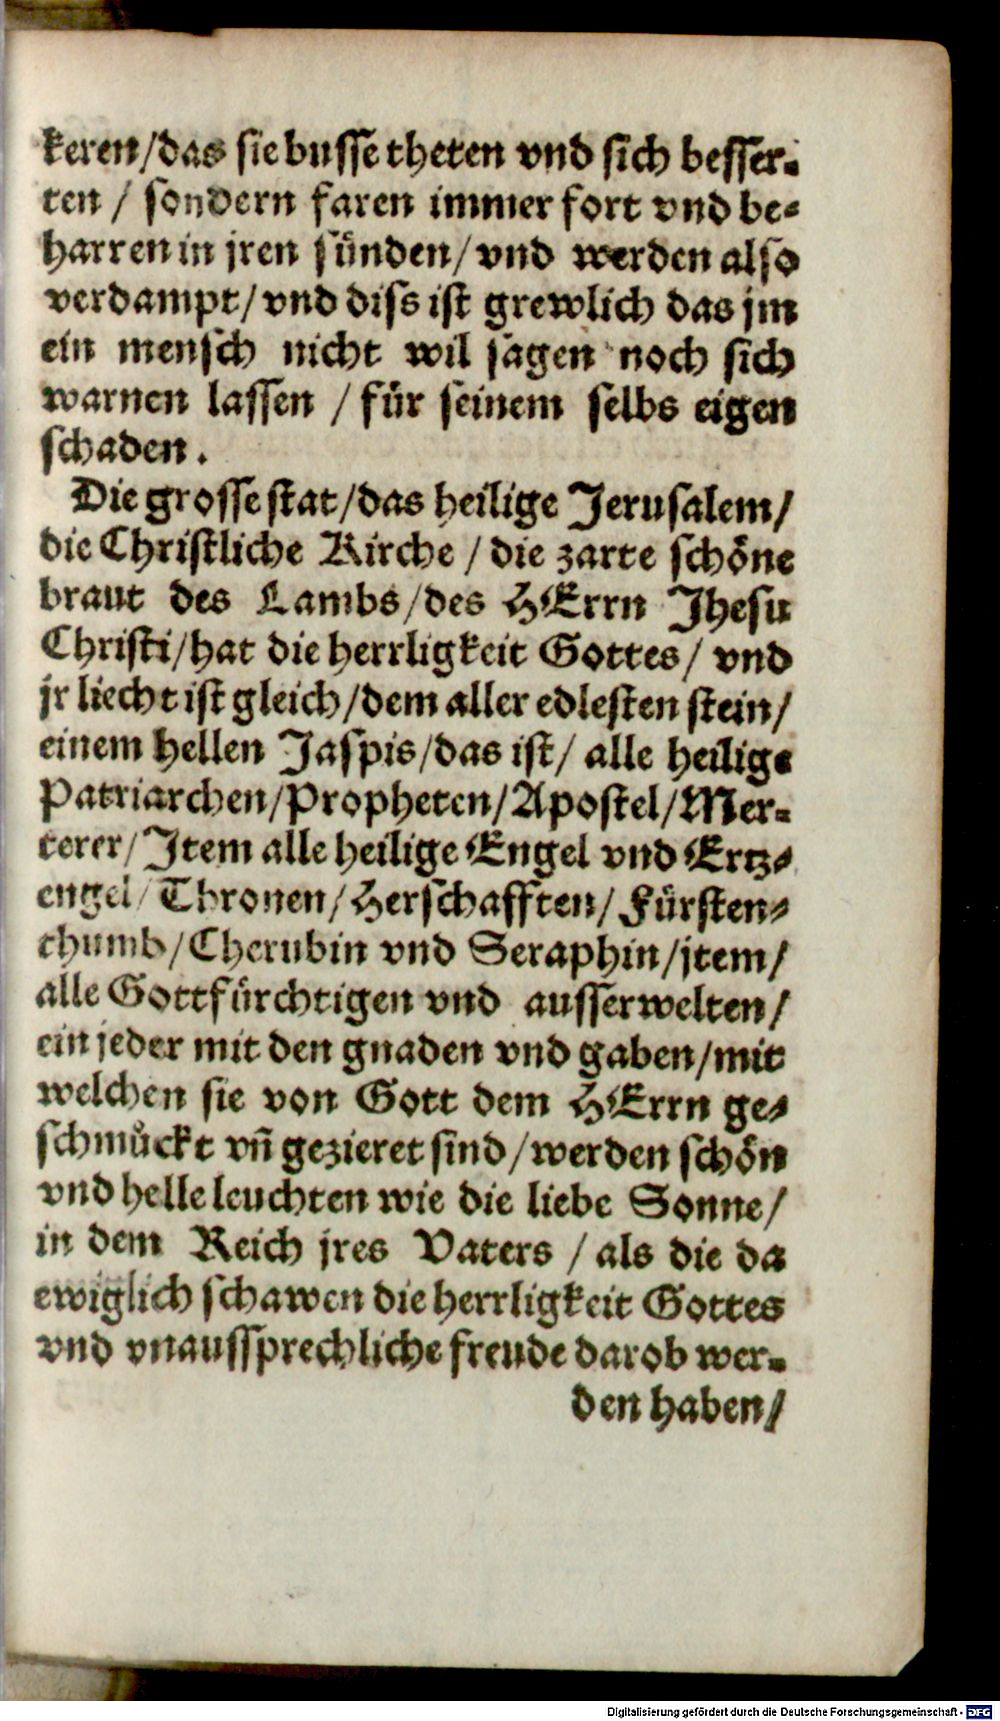 keren/das sie busse theten vnd sich besser-
ten / sondern faren immer fort vnd be-
harren in jren sünden/ vnd werden also
verdampt/ vnd diss ist grewlich das jm
ein mensch nicht wil sagen noch sich
warnen lassen / für seinem selbs eigen
schaden.
Die grosse stat/das heilige Jerusalem/
die Christliche Kirche / die zarte schöne
braut des Lambs/des HErrn Jhesu
Christi/hat die herrligkeit Gottes/ vnd
jr liecht ist gleich/dem aller edlesten stein/
einem hellen Jaspis/das ist/ alle heilige
Patriarchen/Propheten/Apostel/Mer-
terer/Item alle heilige Engel vnd Ertz-
engel/Thronen/Herschafften/Fürsten-
thumb/Cherubin vnd Seraphin/jtem/
alle Gottfürchtigen vnd ausserwelten/
ein jeder mit den gnaden vnd gaben/mit
welchen sie von Gott dem HErrn ge-
schmůckt vñ gezieret sind/werden schön
vnd helle leuchten wie die liebe Sonne/
in dem Reich jres Vaters / als die da
ewiglich schawen die herrligkeit Gottes
vnd vnaussprechliche freude darob wer-
den haben/
Digitalisierung gefördert durch die Deutsche Forschungsgemeinschaft - DFG